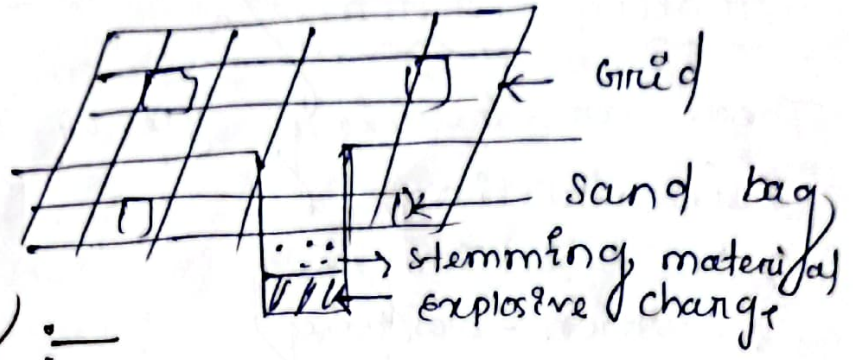 Grid
sand bag
stemming material
explosive charge
:—